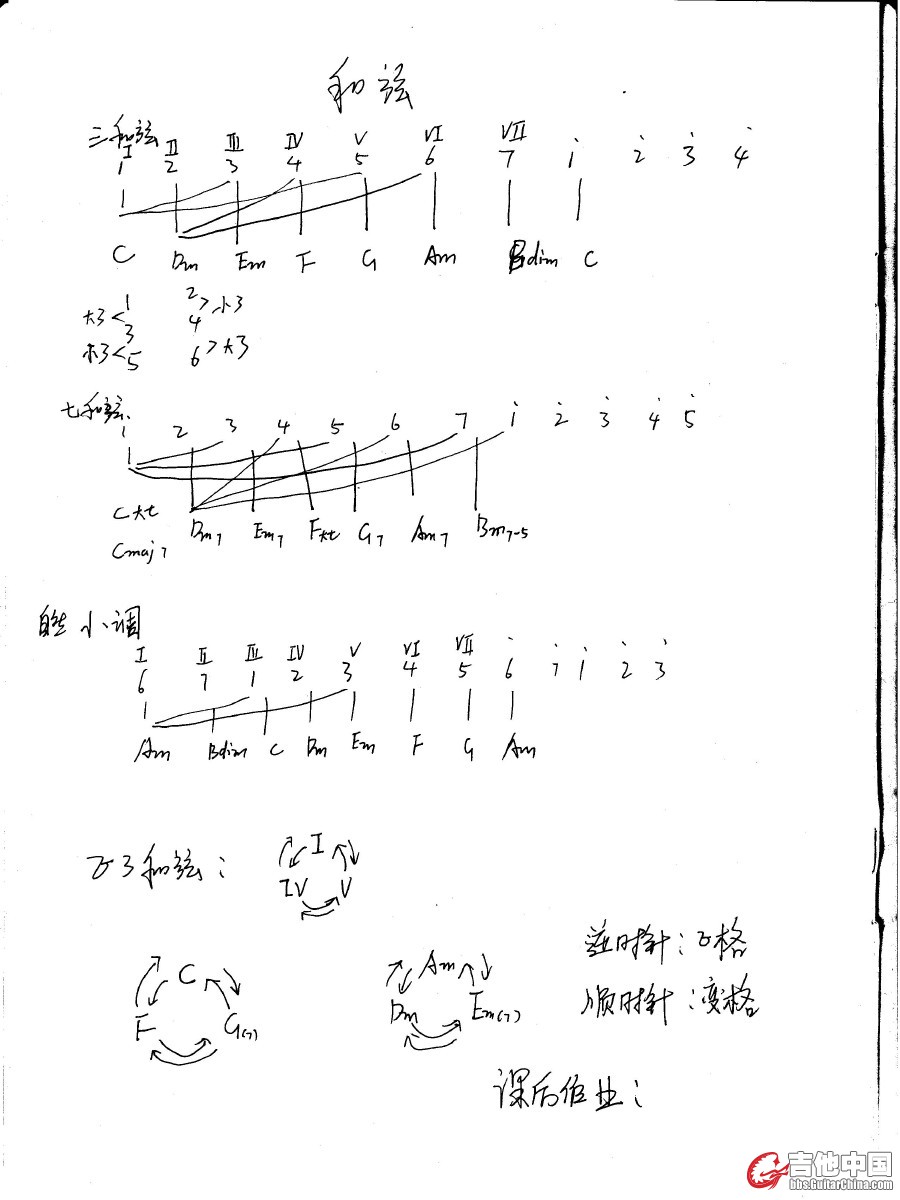 和弦
三和弦
I II III IV V VI VII
1 2 3 4 5 6 7 i 2̇ 3̇ 4̇
C Dm Em F G Am Bdim C
大3 < 1 2 > 小3
3 4
小3 < 5 6 > 大3
七和弦
1 2 3 4 5 6 7 i 2̇ 3̇ 4̇ 5̇
C大七 Dm7 Em7 F大七 G7 Am7 Bm7-5
Cmaj7
自然小调
I II III IV V VI VII
6 7 1 2 3 4 5 6̇ 7̇ i 2̇ 3̇
Am Bdim C Dm Em F G Am
正三和弦:
I
IV V
逆时针:正格
C Am
顺时针:变格
F G(7) Dm Em(7)
课后作业:
吉他中国
bbs.GuitarChina.com